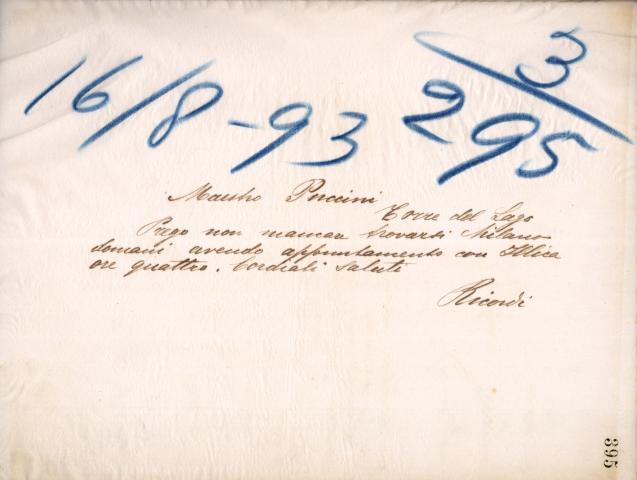 16/8-93 3/295
Maestro Puccini
Torre del Lago
Prego non mancar trovarsi Milano
domani avendo appuntamento con Illica
ore quattro. Cordiali saluti
Ricordi
395